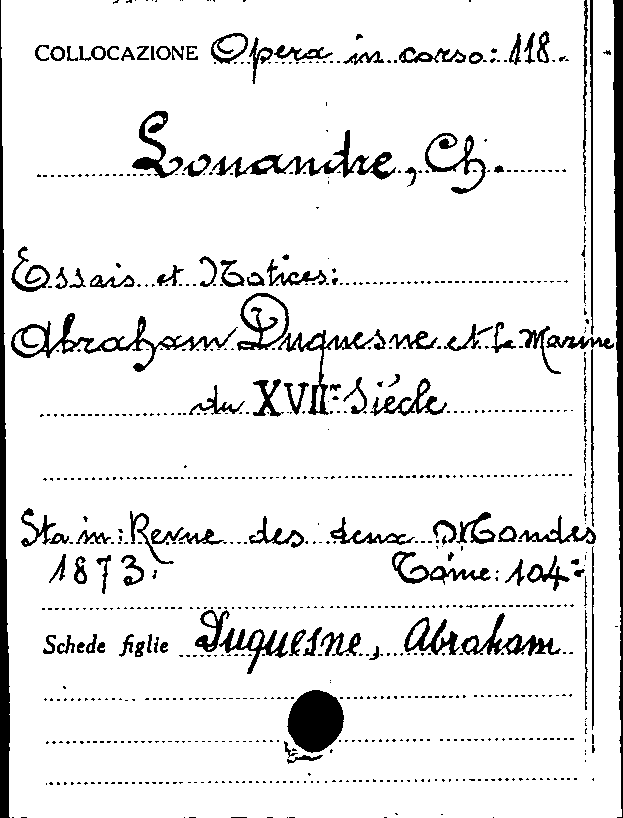 COLLOCAZIONE Opera in corso: 118.
Louandre, Ch.
Essais et Notices:
Abraham Duquesne et la Marine
du XVIIme Siécle
Sta in: Revue des deux Mondes
1873. Tome: 104:
Schede figlie Duquesne, Abraham